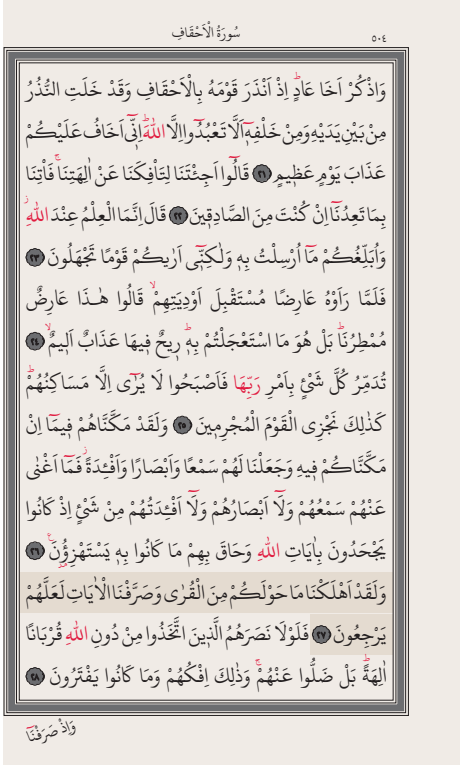 سُورَةُ الْاَحْقَافِ
٥٠٤
وَاذْكُرْ اَخَا عَادٍۜ اِذْ اَنْذَرَ قَوْمَهُ بِالْاَحْقَافِ وَقَدْ خَلَتِ النُّذُرُ
مِنْ بَيْنِ يَدَيْهِ وَمِنْ خَلْفِهٖٓ اَلَّا تَعْبُدُٓوا اِلَّا اللّٰهَۜ اِنّٖٓي اَخَافُ عَلَيْكُمْ
عَذَابَ يَوْمٍ عَظٖيمٍ ﴿٢١﴾ قَالُٓوا اَجِئْتَنَا لِتَأْفِكَنَا عَنْ اٰلِهَتِنَاۚ فَأْتِنَا
بِمَا تَعِدُنَٓا اِنْ كُنْتَ مِنَ الصَّادِقٖينَ ﴿٢٢﴾ قَالَ اِنَّمَا الْعِلْمُ عِنْدَ اللّٰهِۘ
وَاُبَلِّغُكُمْ مَٓا اُرْسِلْتُ بِهٖ وَلٰكِنّٖٓي اَرٰيكُمْ قَوْمًا تَجْهَلُونَ ﴿٢٣﴾
فَلَمَّا رَاَوْهُ عَارِضًا مُسْتَقْبِلَ اَوْدِيَتِهِمْۙ قَالُوا هٰذَا عَارِضٌ
مُمْطِرُنَاۜ بَلْ هُوَ مَا اسْتَعْجَلْتُمْ بِهٖۜ رٖيحٌ فٖيهَا عَذَابٌ اَلٖيمٌۙ ﴿٢٤﴾
تُدَمِّرُ كُلَّ شَيْءٍ بِاَمْرِ رَبِّهَا فَاَصْبَحُوا لَا يُرٰٓى اِلَّا مَسَاكِنُهُمْۜ
كَذٰلِكَ نَجْزِي الْقَوْمَ الْمُجْرِمٖينَ ﴿٢٥﴾ وَلَقَدْ مَكَّنَّاهُمْ فٖيمَٓا اِنْ
مَكَّنَّاكُمْ فٖيهِ وَجَعَلْنَا لَهُمْ سَمْعًا وَاَبْصَارًا وَاَفْـِٔدَةًۘ فَمَٓا اَغْنٰى
عَنْهُمْ سَمْعُهُمْ وَلَٓا اَبْصَارُهُمْ وَلَٓا اَفْـِٔدَتُهُمْ مِنْ شَيْءٍ اِذْ كَانُوا
يَجْحَدُونَ بِاٰيَاتِ اللّٰهِ وَحَاقَ بِهِمْ مَا كَانُوا بِهٖ يَسْتَهْزِؤُ۫نَ۟ ﴿٢٦﴾
وَلَقَدْ اَهْلَكْنَا مَا حَوْلَكُمْ مِنَ الْقُرٰى وَصَرَّفْنَا الْاٰيَاتِ لَعَلَّهُمْ
يَرْجِعُونَ ﴿٢٧﴾ فَلَوْلَا نَصَرَهُمُ الَّذٖينَ اتَّخَذُوا مِنْ دُونِ اللّٰهِ قُرْبَانًا
اٰلِهَةًۜ بَلْ ضَلُّوا عَنْهُمْۚ وَذٰلِكَ اِفْكُهُمْ وَمَا كَانُوا يَفْتَرُونَ ﴿٢٨﴾
وَاِذْ صَرَفْنَٓا